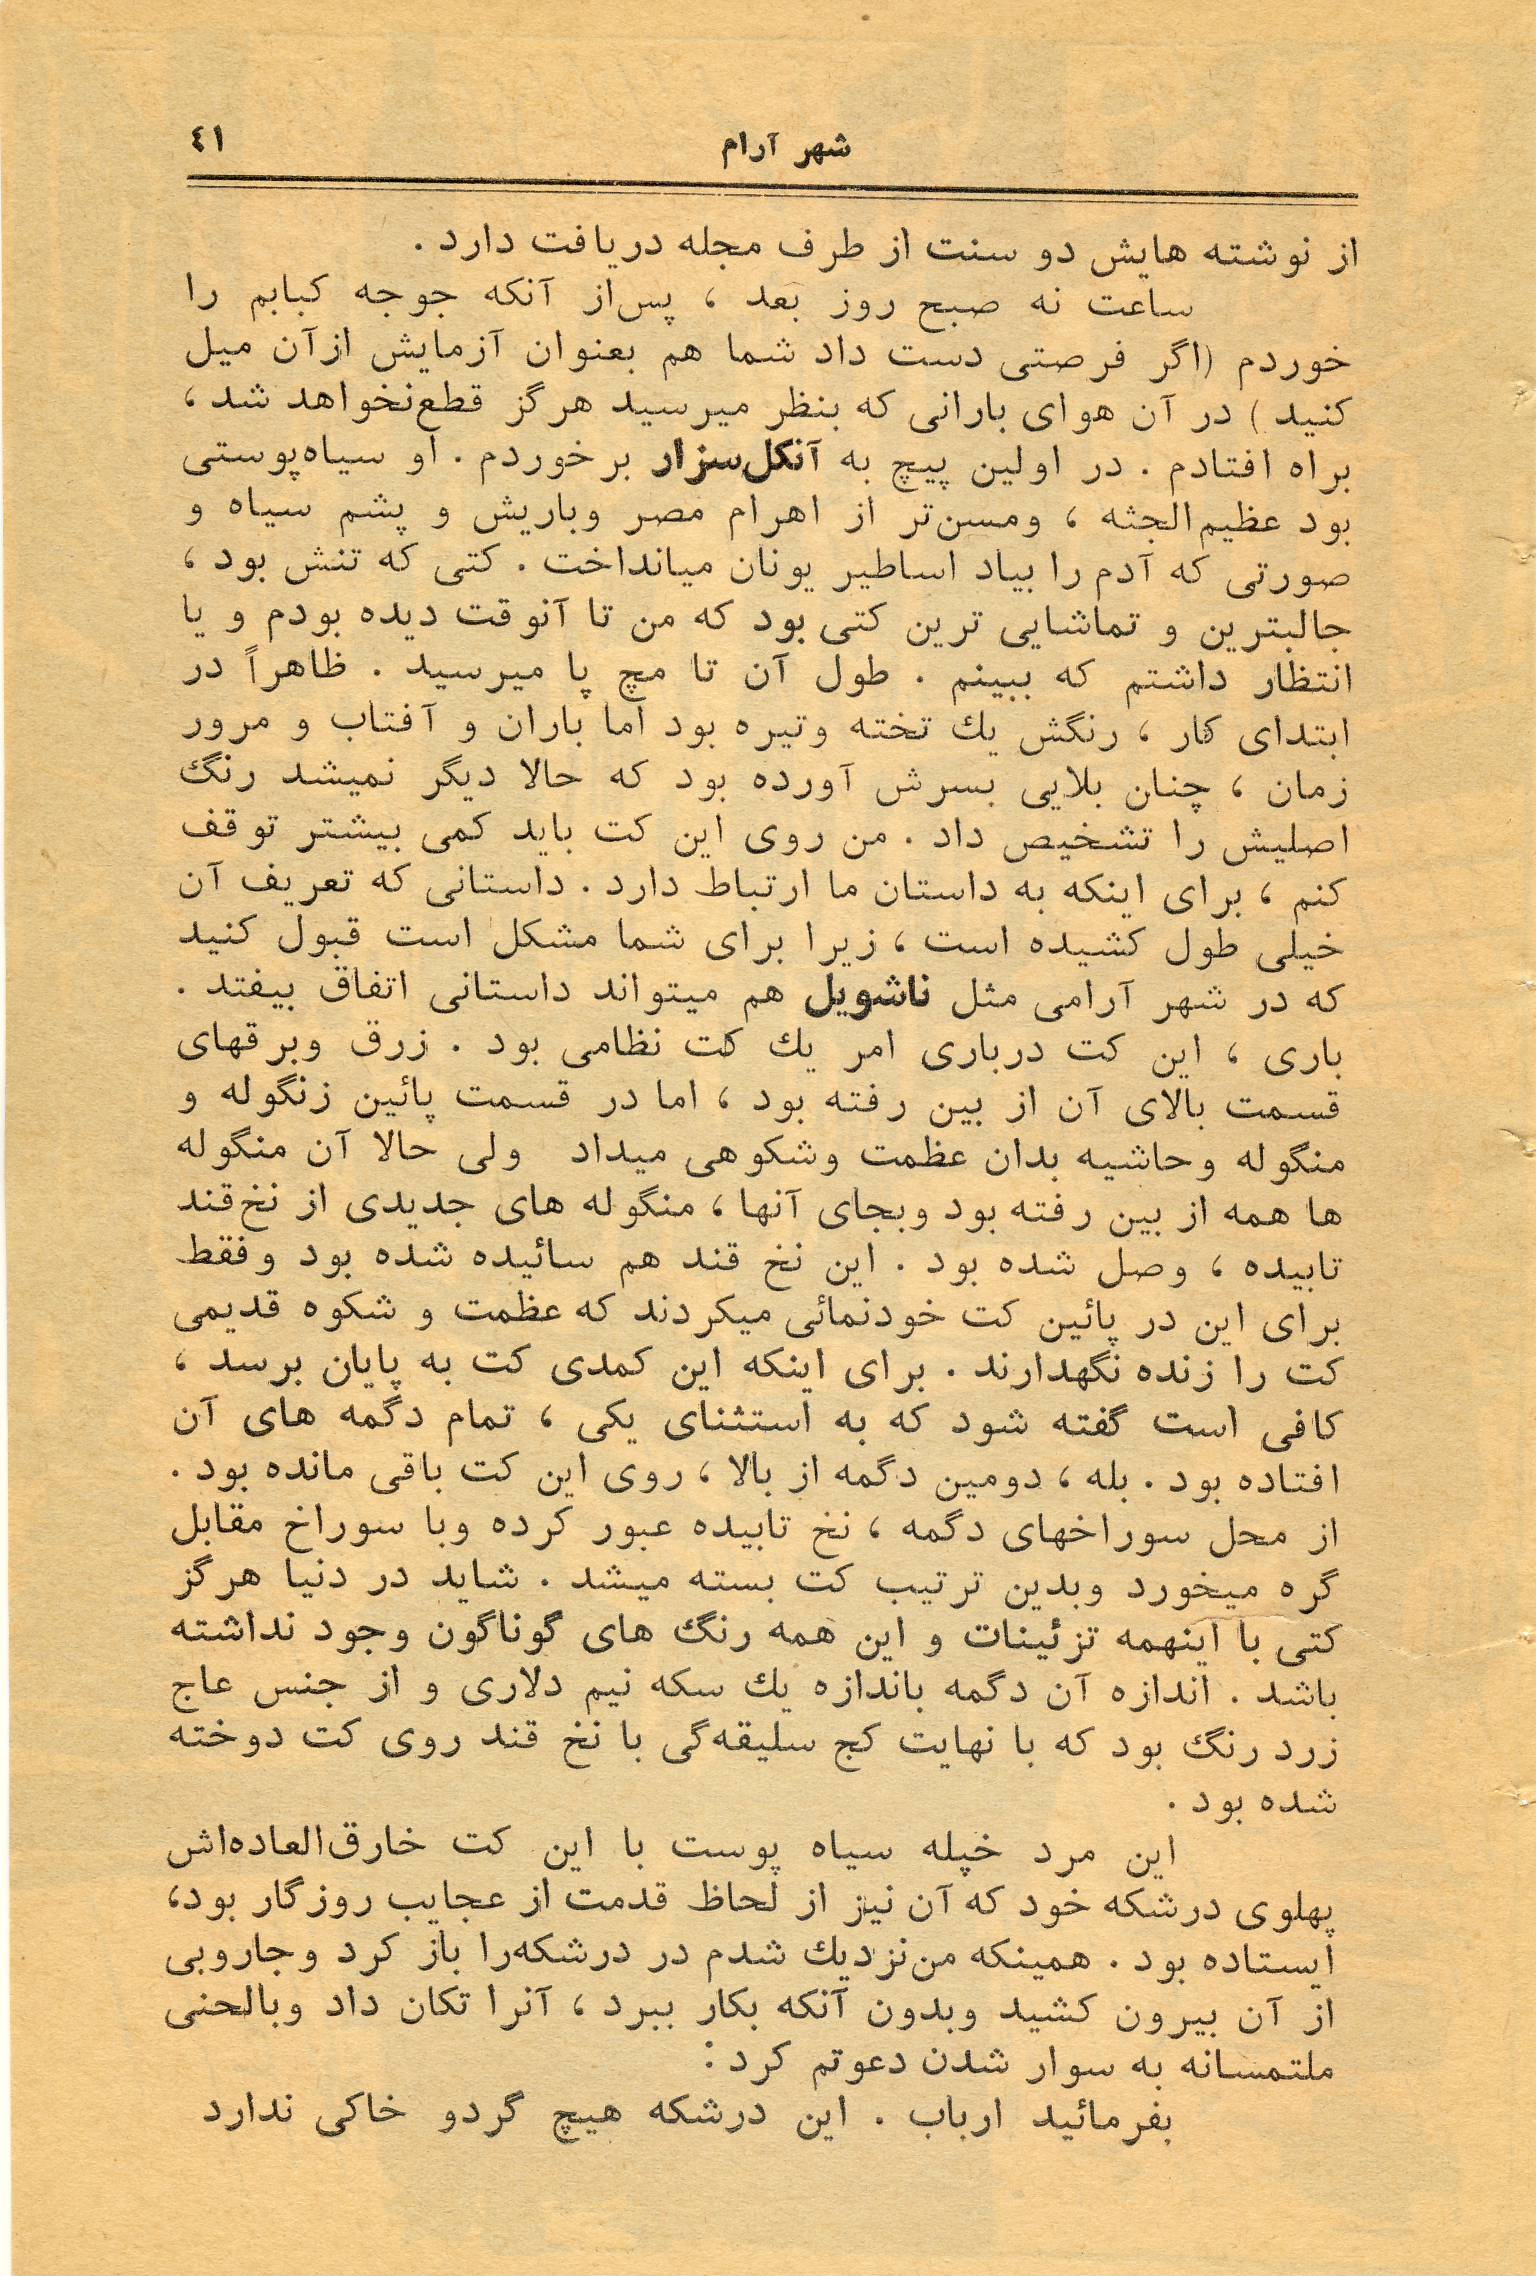 شهر آرام
٤١
از نوشته هایش دو سنت از طرف مجله دریافت دارد .
ساعت نه صبح روز بعد ، پس‌از آنکه جوجه کبابم را
خوردم (اگر فرصتی دست داد شما هم بعنوان آزمایش ازآن میل
کنید ) در آن هوای بارانی که بنظر میرسید هرگز قطع‌نخواهد شد ،
براه افتادم . در اولین پیچ به آنکل‌سزار برخوردم . او سیاه‌پوستی
بود عظیم‌الجثه ، ومسن‌تر از اهرام مصر وباریش و پشم سیاه و
صورتی که آدم را بیاد اساطیر یونان میانداخت . کتی که تنش بود ،
جالبترین و تماشایی ترین کتی بود که من تا آنوقت دیده بودم و یا
انتظار داشتم که ببینم . طول آن تا مچ پا میرسید . ظاهراً در
ابتدای کار ، رنگش یك تخته وتیره بود اما باران و آفتاب و مرور
زمان ، چنان بلایی بسرش آورده بود که حالا دیگر نمیشد رنگ
اصلیش را تشخیص داد . من روی این کت باید کمی بیشتر توقف
کنم ، برای اینکه به داستان ما ارتباط دارد . داستانی که تعریف آن
خیلی طول کشیده است ، زیرا برای شما مشکل است قبول کنید
که در شهر آرامی مثل ناشویل هم میتواند داستانی اتفاق بیفتد .
باری ، این کت درباری امر یك کت نظامی بود . زرق وبرقهای
قسمت بالای آن از بین رفته بود ، اما در قسمت پائین زنگوله و
منگوله وحاشیه بدان عظمت وشکوهی میداد ولی حالا آن منگوله
ها همه از بین رفته بود وبجای آنها ، منگوله های جدیدی از نخ‌قند
تابیده ، وصل شده بود . این نخ قند هم سائیده شده بود وفقط
برای این در پائین کت خودنمائی میکردند که عظمت و شکوه قدیمی
کت را زنده نگهدارند . برای اینکه این کمدی کت به پایان برسد ،
کافی است گفته شود که به استثنای یکی ، تمام دگمه های آن
افتاده بود . بله ، دومین دگمه از بالا ، روی این کت باقی مانده بود .
از محل سوراخهای دگمه ، نخ تابیده عبور کرده وبا سوراخ مقابل
گره میخورد وبدین ترتیب کت بسته میشد . شاید در دنیا هرگز
کتی با اینهمه تزئینات و این همه رنگ های گوناگون وجود نداشته
باشد . اندازه آن دگمه باندازه یك سکه نیم دلاری و از جنس عاج
زرد رنگ بود که با نهایت کج سلیقه‌گی با نخ قند روی کت دوخته
شده بود .
این مرد خپله سیاه پوست با این کت خارق‌العاده‌اش
پهلوی درشکه خود که آن نیز از لحاظ قدمت از عجایب روزگار بود،
ایستاده بود . همینکه من‌نزدیك شدم در درشکه‌را باز کرد وجاروبی
از آن بیرون کشید وبدون آنکه بکار ببرد ، آنرا تکان داد وبالحنی
ملتمسانه به سوار شدن دعوتم کرد :
بفرمائید ارباب . این درشکه هیچ گردو خاکی ندارد